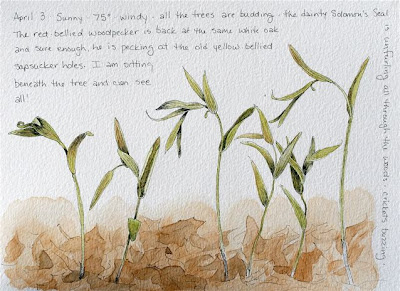 April 3 Sunny 75° windy - all the trees are budding - the dainty Solomon's Seal
The red bellied woodpecker is back at the same white oak
and sure enough, he is pecking at the old yellow bellied
sapsucker holes. I am sitting
beneath the tree and can see
all!
is unfurling all through the woods. crickets buzzing.